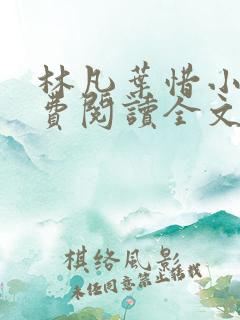 林凡葉惜小
費閱讀全文
棋络風影
未经同意禁止转载